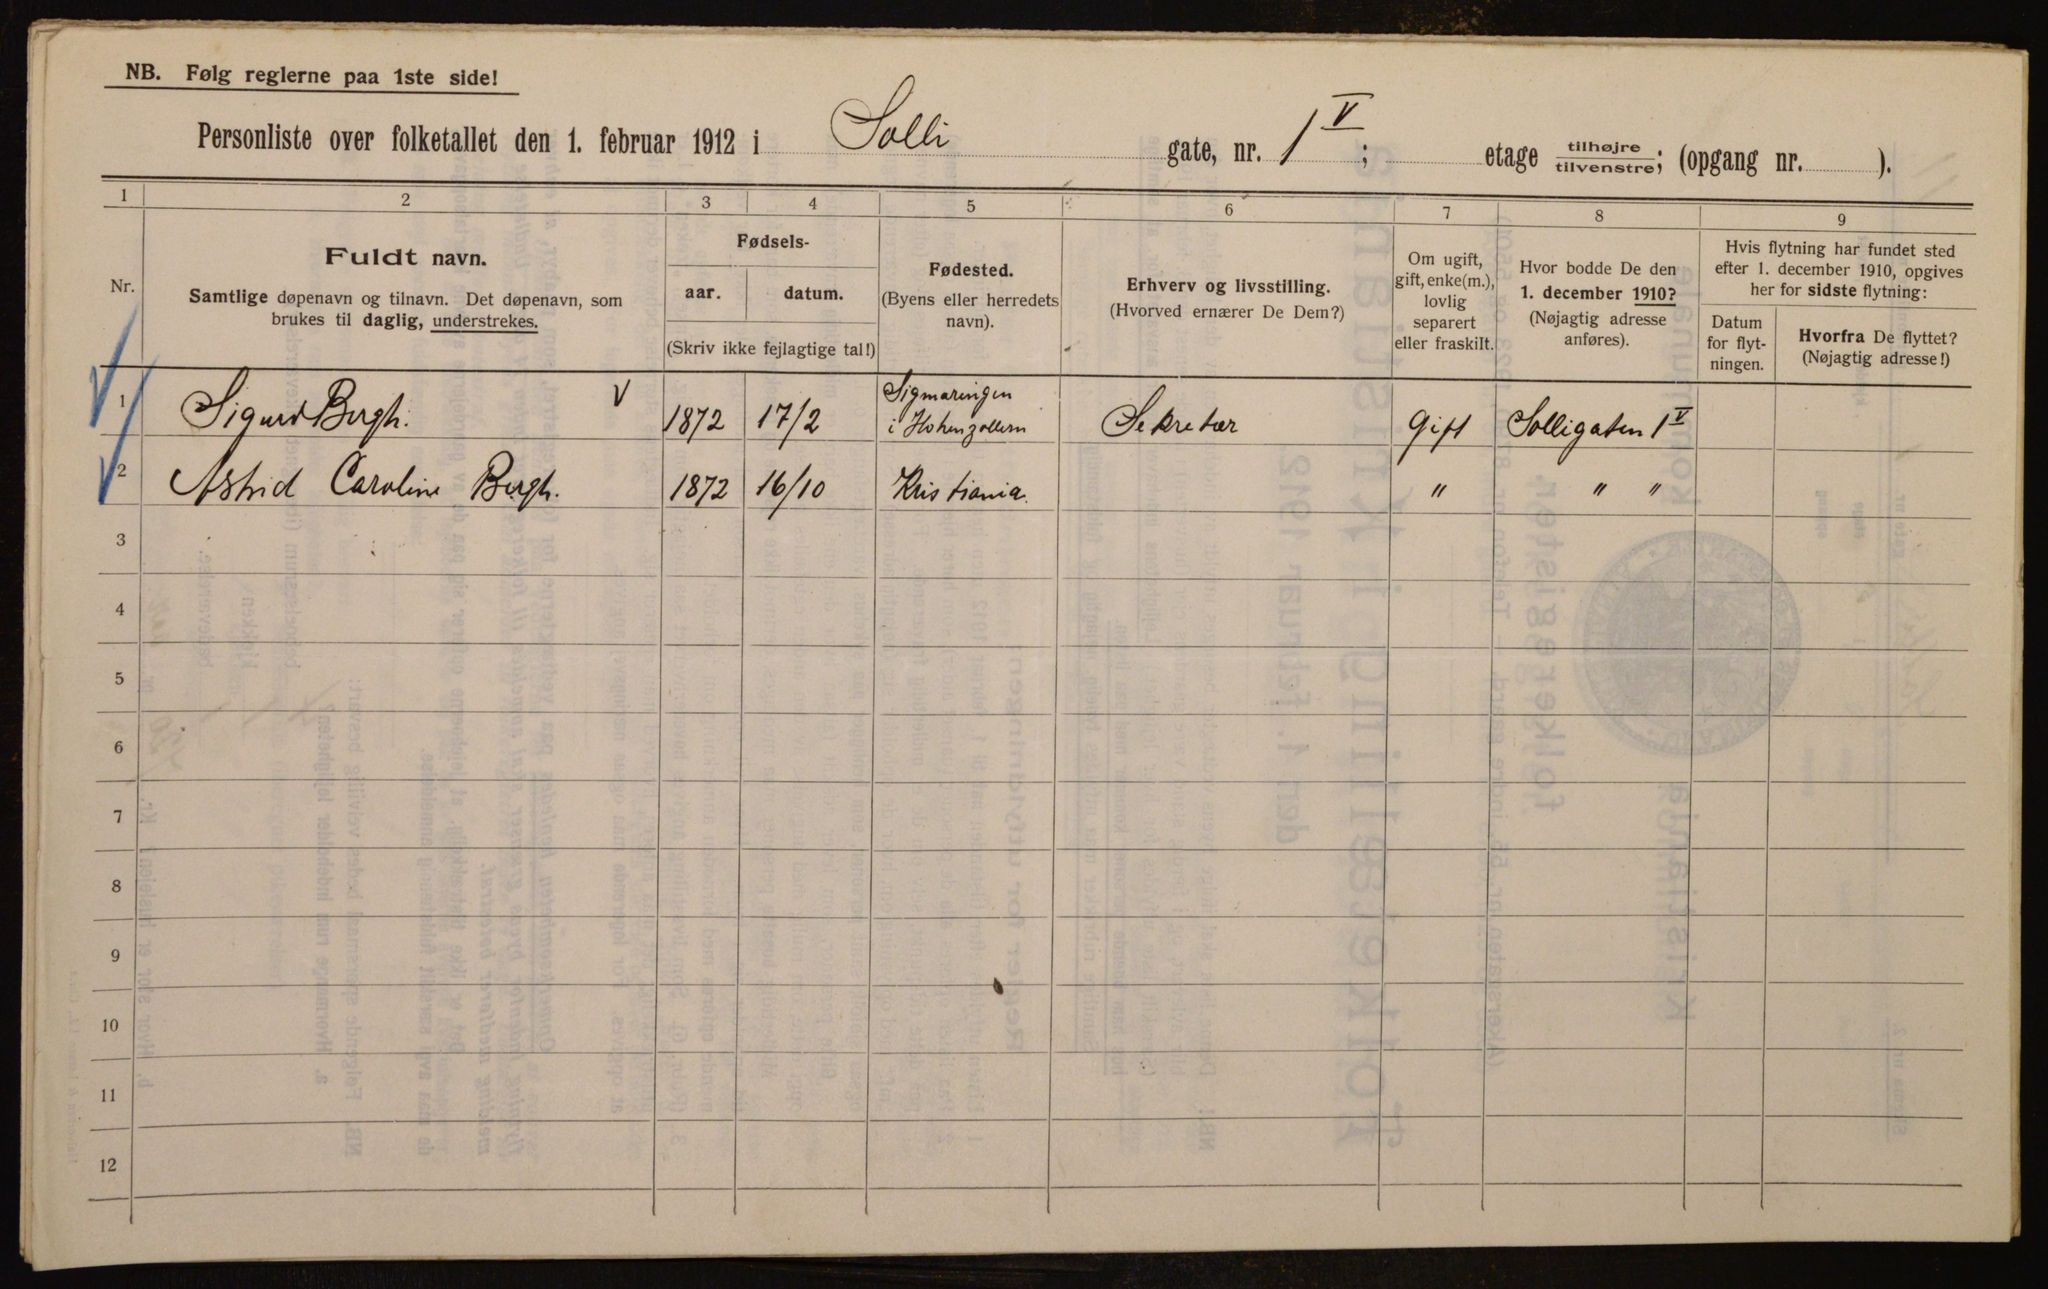 NB. Følg reglerne paa 1ste side!
Personliste over folketallet den 1. februar 1912 i Solli gate, nr. 1 V; etage tilhøjre/tilvenstre; (opgang nr. ).
1 2 3 4 5 6 7 8 9
Nr.
Fuldt navn.
Samtlige døpenavn og tilnavn. Det døpenavn, som
brukes til daglig, understrekes.
Fødsels-
aar. datum.
(Skriv ikke fejlagtige tal!)
Fødested.
(Byens eller herredets
navn).
Erhverv og livsstilling.
(Hvorved ernærer De Dem?)
Om ugift,
gift, enke(m.),
lovlig
separert
eller fraskilt.
Hvor bodde De den
1. december 1910?
(Nøjagtig adresse
anføres).
Hvis flytning har fundet sted
efter 1. december 1910, opgives
her for sidste flytning:
Datum
for flyt-
ningen.
Hvorfra De flyttet?
(Nøjagtig adresse!)
1 Sigurd Bergh. V 1872 17/2 Sigmaringen
i Hohenzollern Sekretær Gift Solligaten 1 V
2 Astrid Caroline Bergh. 1872 16/10 Kristiania. " " "
3
4
5
6
7
8
9
10
11
12